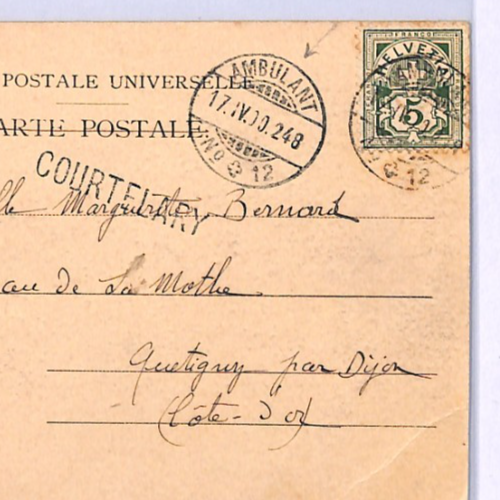 FRANCO
HELVETIA
5
AMBULANT
17.IV.00.248
No 12
No 12
POSTALE UNIVERSELLE
CARTE POSTALE
COURTELARY
lle Marguerite Bernard
au de La Mothe
Quetigny par Dijon
(Côte-d'or)